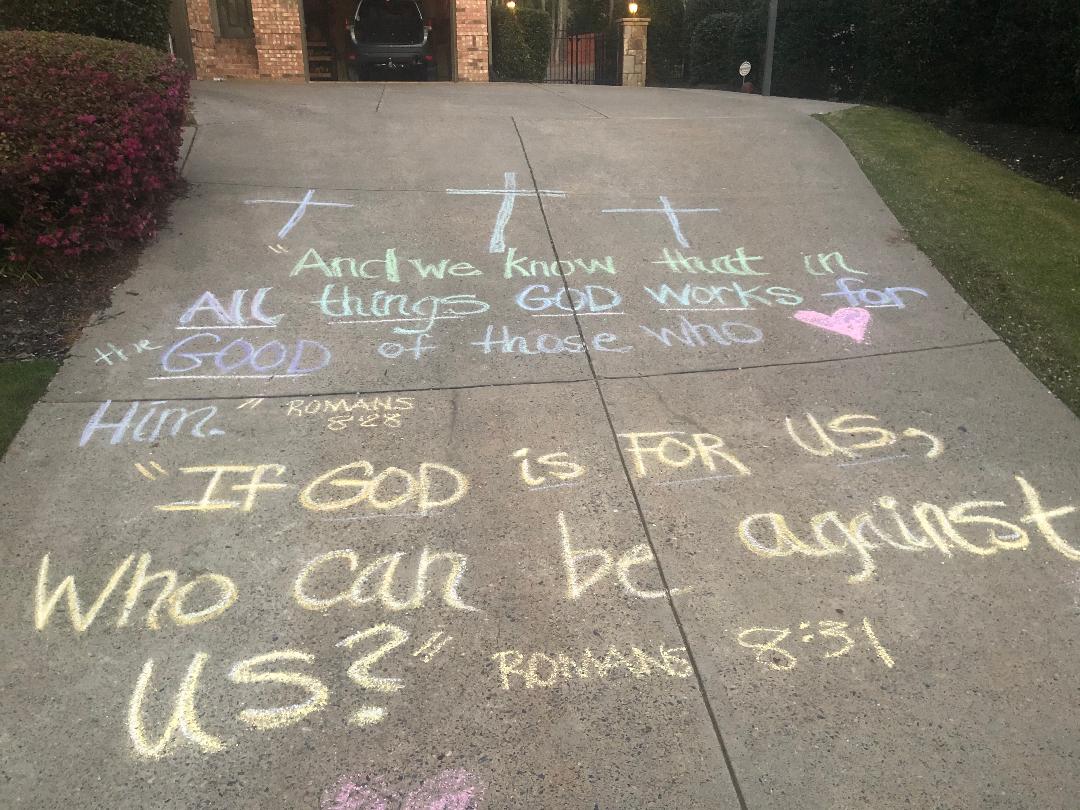 "And we know that in
All things GOD works for
the GOOD of those who
Him." ROMANS
8:28
"If GOD is FOR US,
Who can be against
US?" ROMANS 8:31